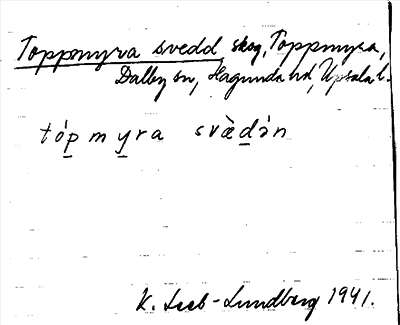 Toppmyra svedd skog, Toppmyra,
Dalby sn, Hagunda hd, Upsala l.
tóp̲ m y̲ra svæ̀d̲ə̀n
K. Leeb-Lundberg 1941.